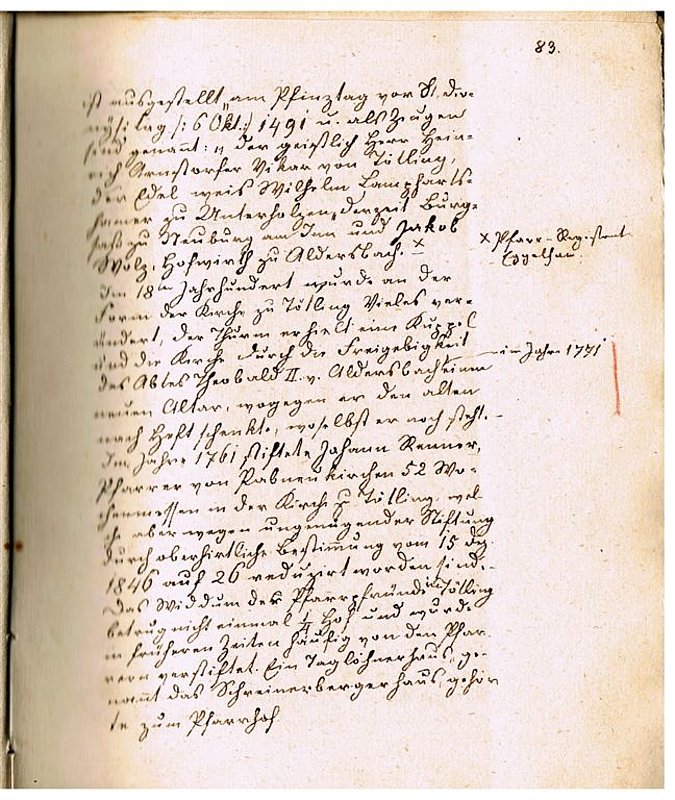 83.
ist ausgestellt „am Pfinztag vor St. Dio-
nysitag /: 6 Okt :/ 1491 u. als Zeugen
sind genannt: „ der geistlich Herr Hein-
rich Arnstorfer Vikar von Tötling,
der Edel weis Wilhelm Lampharts-
hamer zu Unterholzen, derzeit Burg-
saß zu Neuburg am Inn und Jakob
Wolz, Hofwirth zu Aldersbach. ×
× Pfarr-Registrat.
Egglham.
Im 18ten Jahrhundert wurde an der
Form der Kirche zu Tötling Vieles ver-
ändert, der Thurm erhielt eine Kuppel
und die Kirche durch die Freigebigkeit
des Abtes Theobald II. v. Aldersbach einen
im Jahre 1771
neuen Altar, wogegen er den alten
nach Heft schenkte, woselbst er noch steht. –
Im Jahre 1761 stiftete Johann Renner,
Pfarrer von Pabneukirchen 52 Wo-
chenmessen in der Kirche zu Tötling, wel-
che aber wegen ungenügender Stiftung
durch oberhirtliche Bestimmung vom 15 Dez.
1846 auf 26 reduzirt worden sind. –
Das Widdum der Pfarrpfründe in Tötling
betrug nicht einmal 1/4 Hof und wurde
in früheren Zeiten häufig von den Pfar-
rern verstiftet. Ein Taglöhnerhaus, ge-
nannt das Schreinerbergerhaus, gehör
te zum Pfarrhof